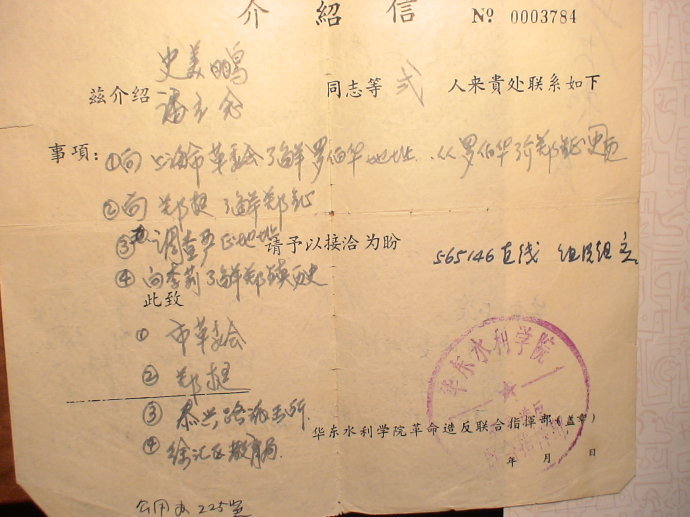 介紹信 № 0003784
史美鹏
茲介绍 同志等 弍 人来貴处联系如下
事項：①向上海市革委会了解罗伯华地址，从罗伯华了解郑
②向郑挺了解郑
③调查严 地址 请予以接洽为盼 565146直线 组织组
④向李莉了解郑 历史
此致
①市革委会
②郑挺
③泰兴路派出所
④徐汇区教育局
华东水利学院
华东水利学院革命造反联合指揮部(盖章)
年 月 日
225室